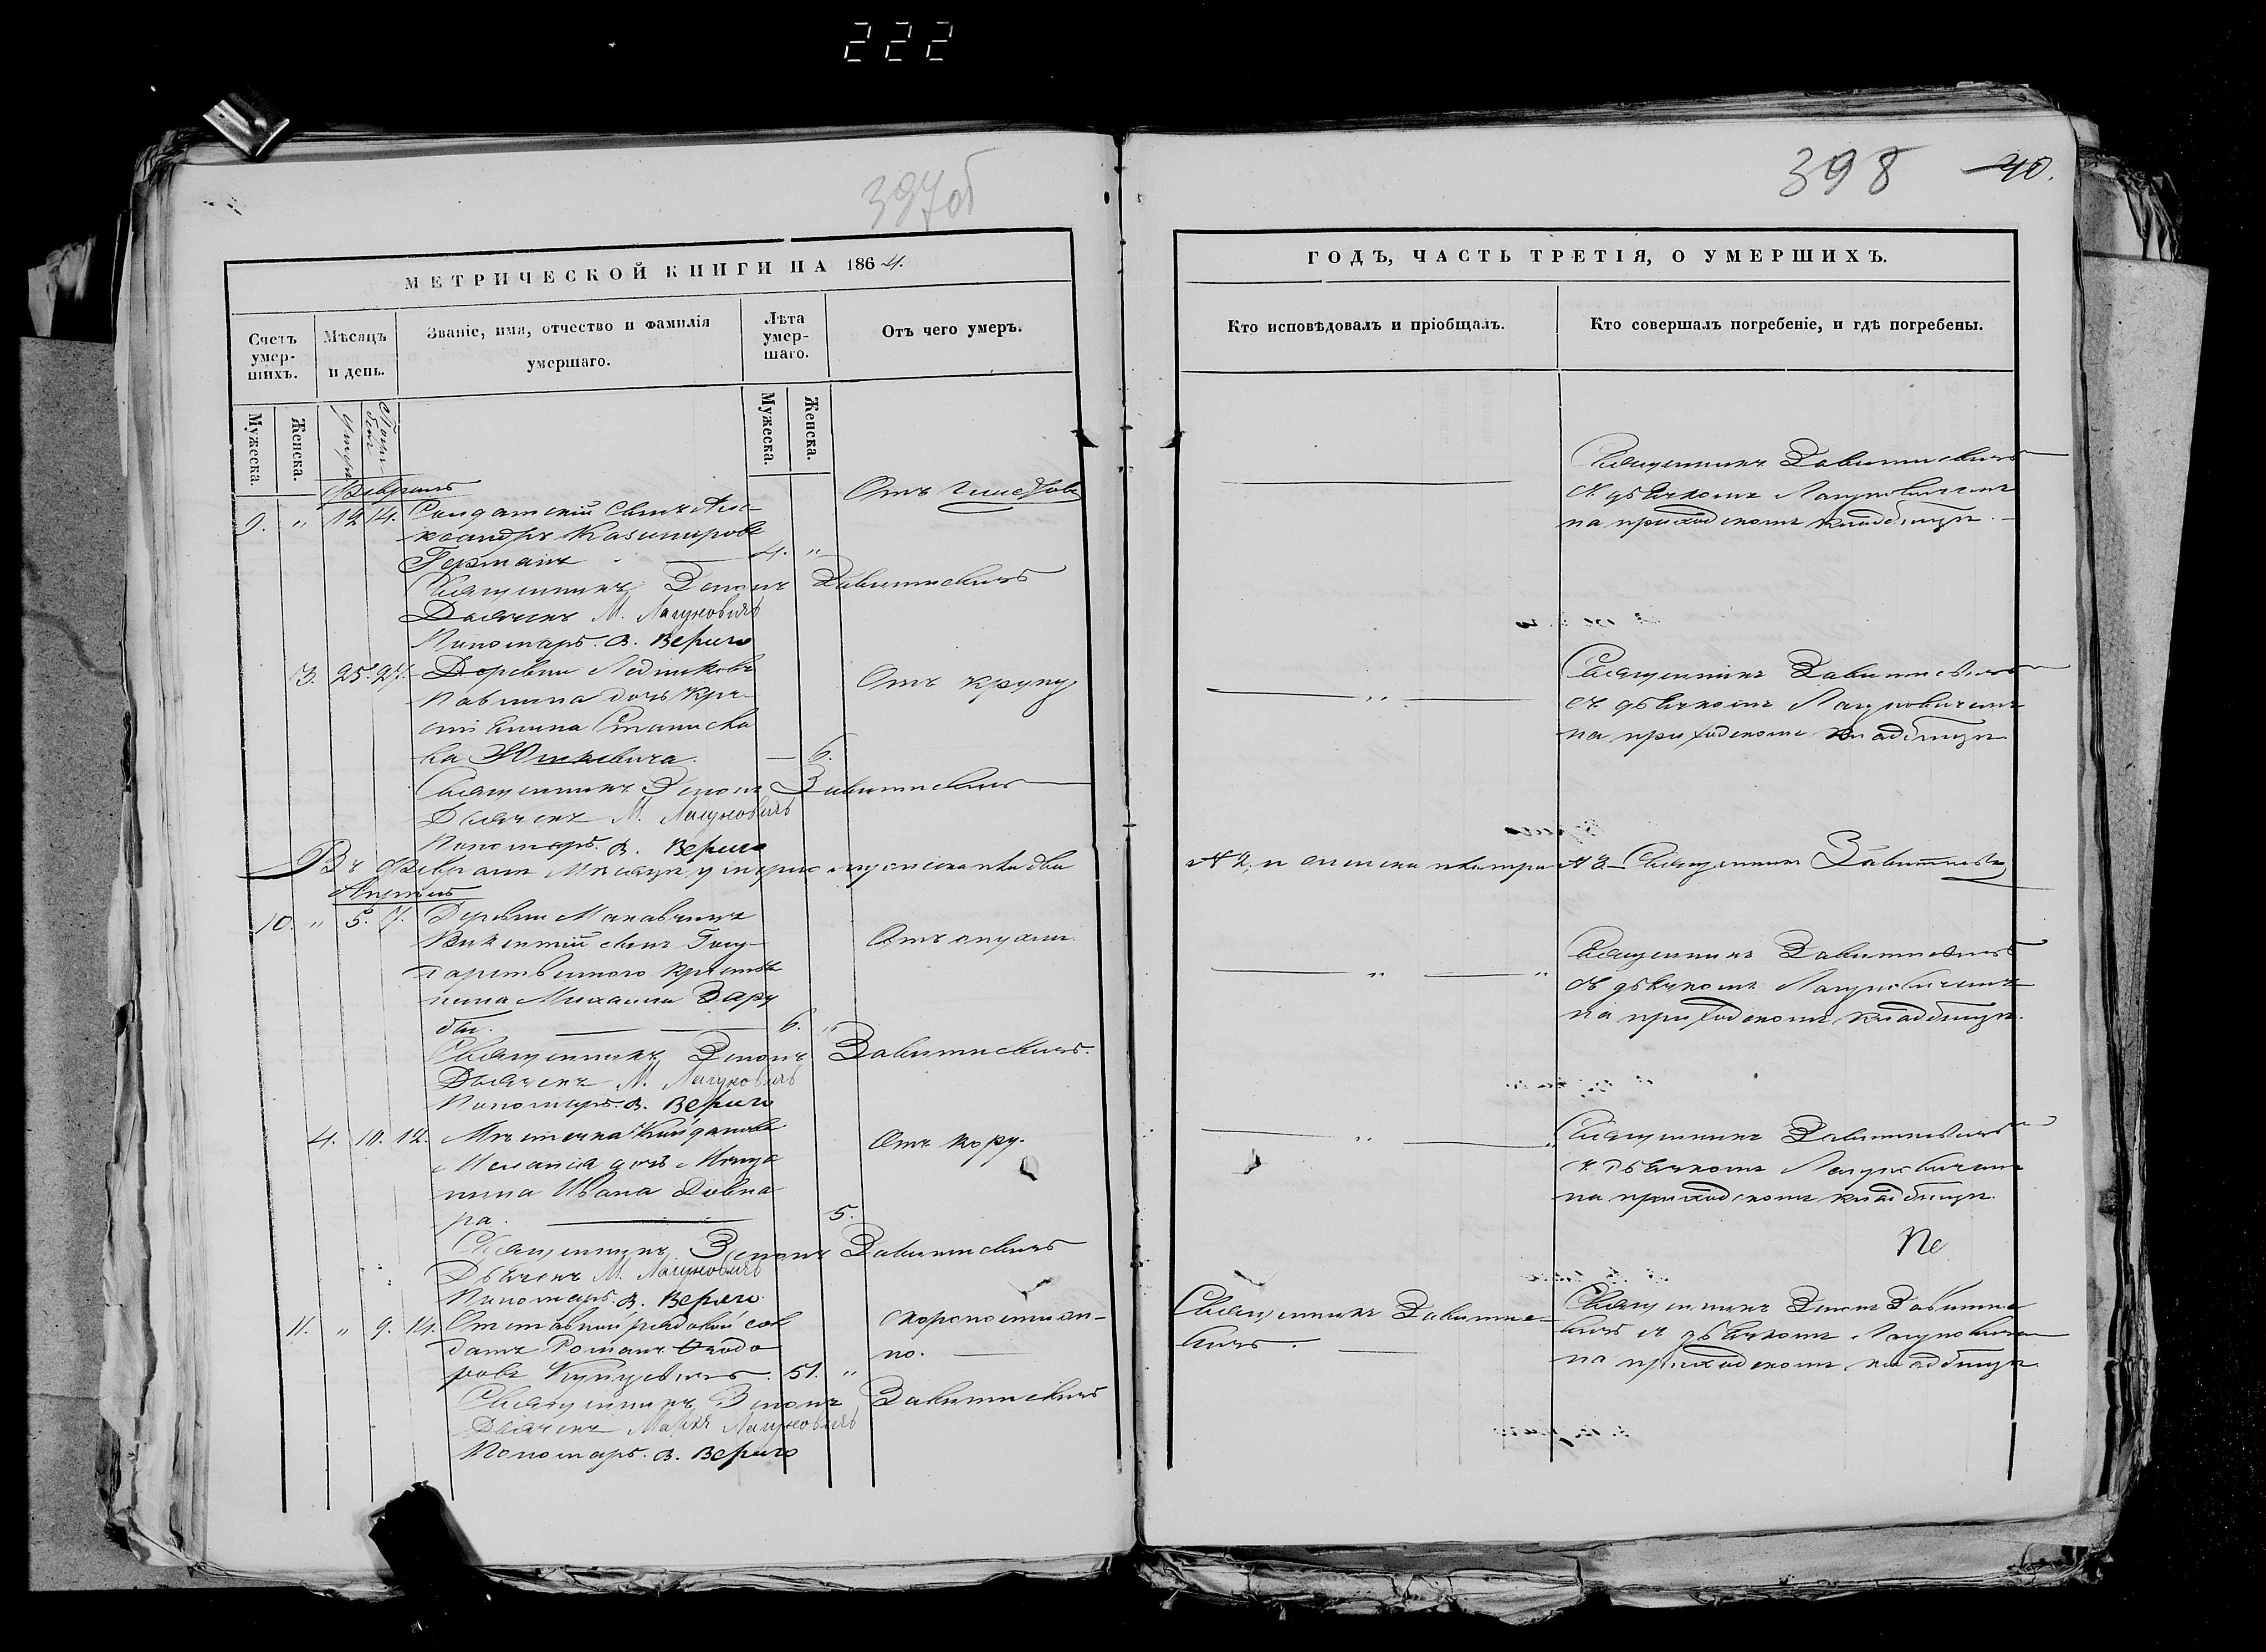 222
397об
МЕТРИЧЕСКОЙ КНИГИ НА 1864.
Счетъ умер-шихъ.
Мѣсяцъ и день.
Званіе, имя, отчество и фамилія
умершаго.
Лѣта умер-шаго.
Отъ чего умеръ.
Мужеска.
Женска.
Мужеска.
Женска.
Февраль
9. " 12 14. Солдатскій сынъ Але-
ксандръ Казимировъ
Германъ 4. "
Священникъ Зенонъ Завитневичъ
Дьячекъ М. Лагуновичъ
Пономарь. В. Вериго
3. 25. 27. Деревни
Павлина дочь Кре-
стьянина Станисла
ва Юшкевича. — 6.
Отъ крупу
Священникъ Зенонъ Завитневичъ
Дьячекъ М. Лагуновичъ
Пономарь. В. Вериго
Въ Февралѣ мѣсяцѣ умерло мужеска пола два
Апрѣль
10. " 5. 7. Деревни
Викентій сынъ Госу-
дарственнаго крестья
нина Михаила Зару
бы. 6. "
Священникъ Зенонъ Завитневичъ.
Дьячекъ М. Лагуновичъ
Пономарь. В. Вериго
4. 10. 12. Мѣстечка Койданова
Меланія дочь Мѣща
нина Ивана Довна
ра. 5.
Отъ кору.
Священникъ Зенонъ Завитневичъ
Дьячекъ М. Лагуновичъ
Пономарь. В. Вериго.
11. " 9. 14. Отставной рядовой сол
датъ Романъ Ѳеодо
ровъ 51. "
скоропостиж-
но.
Священникъ Зенонъ Завитневичъ
Дьячекъ Маркъ Лагуновичъ
Пономарь. В. Вериго
398 40.
ГОДЪ, ЧАСТЬ ТРЕТІЯ, О УМЕРШИХЪ.
Кто исповѣдовалъ и пріобщалъ.
Кто совершалъ погребеніе, и гдѣ погребены.
Священникъ Завитневичъ
съ дьячкомъ Лагуновичемъ
на приходскомъ кладбищѣ.
Священникъ Завитневичъ
съ дьячкомъ Лагуновичемъ
на приходскомъ кладбищѣ
№ 2, и женска пола три № 3. Священникъ Завитневичъ
Священникъ Завитневичъ
съ дьячкомъ Лагуновичемъ
на приходскомъ кладбищѣ.
Священникъ Завитневичъ
съ дьячкомъ Лагуновичемъ
на приходскомъ кладбищѣ.
Священникъ Завитне-
вичъ.
Священникъ Зенонъ Завитне
вичъ съ дьячкомъ Лагуновичемъ
на приходскомъ кладбищѣ.